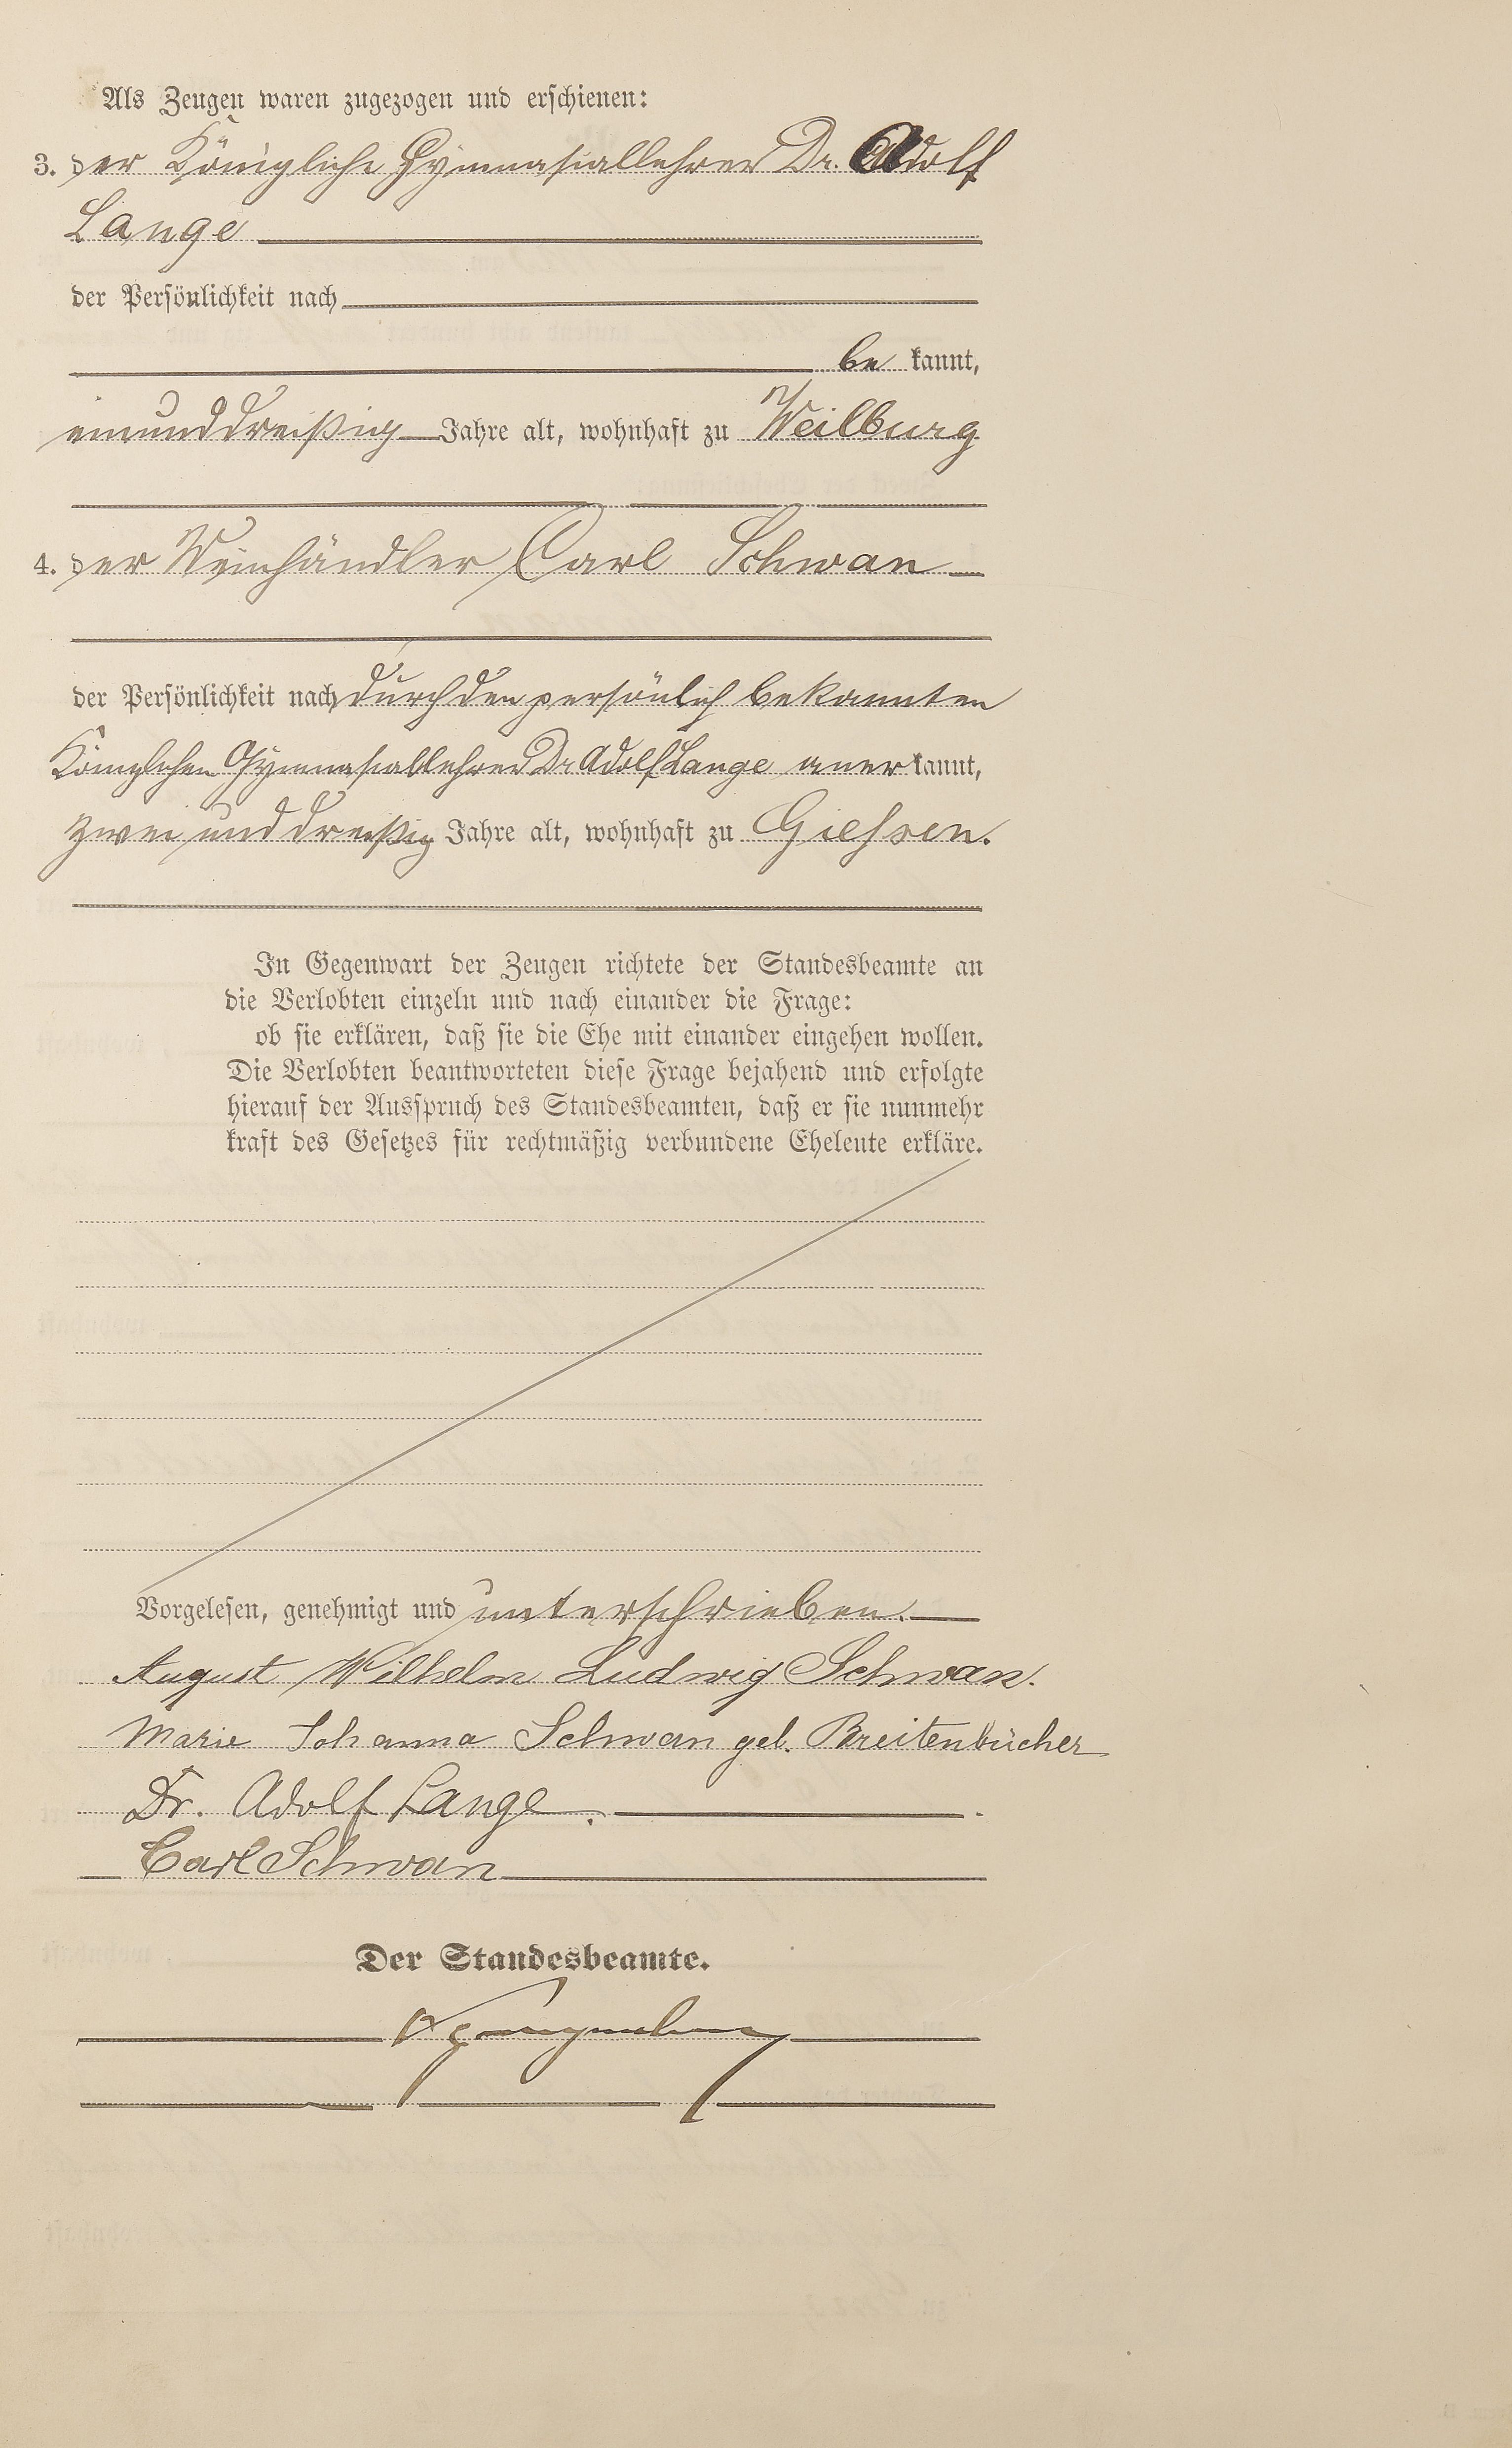 Als Zeugen waren zugezogen und erschienen:
3. der Königliche Gymnasiallehrer Dr. Adolf
Lange
der Persönlichkeit nach
be kannt,
einunddreißig Jahre alt, wohnhaft zu Weilburg
4. der Weinhändler Carl Schwan
der Persönlichkeit nach durch den persönlich bekannten
Königlichen Gymnasiallehrer Dr Adolf Lange aner kannt,
zwei und dreißig Jahre alt, wohnhaft zu Giessen.
In Gegenwart der Zeugen richtete der Standesbeamte an
die Verlobten einzeln und nach einander die Frage:
ob sie erklären, daß sie die Ehe mit einander eingehen wollen.
Die Verlobten beantworteten diese Frage bejahend und erfolgte
hierauf der Ausspruch des Standesbeamten, daß er sie nunmehr
kraft des Gesetzes für rechtmäßig verbundene Eheleute erkläre.
Vorgelesen, genehmigt und unterschrieben.
August Wilhelm Ludwig Schwan.
Marie Johanna Schwan geb. Breitenbücher
Dr. Adolf Lange.
Carl Schwan
Der Standesbeamte.